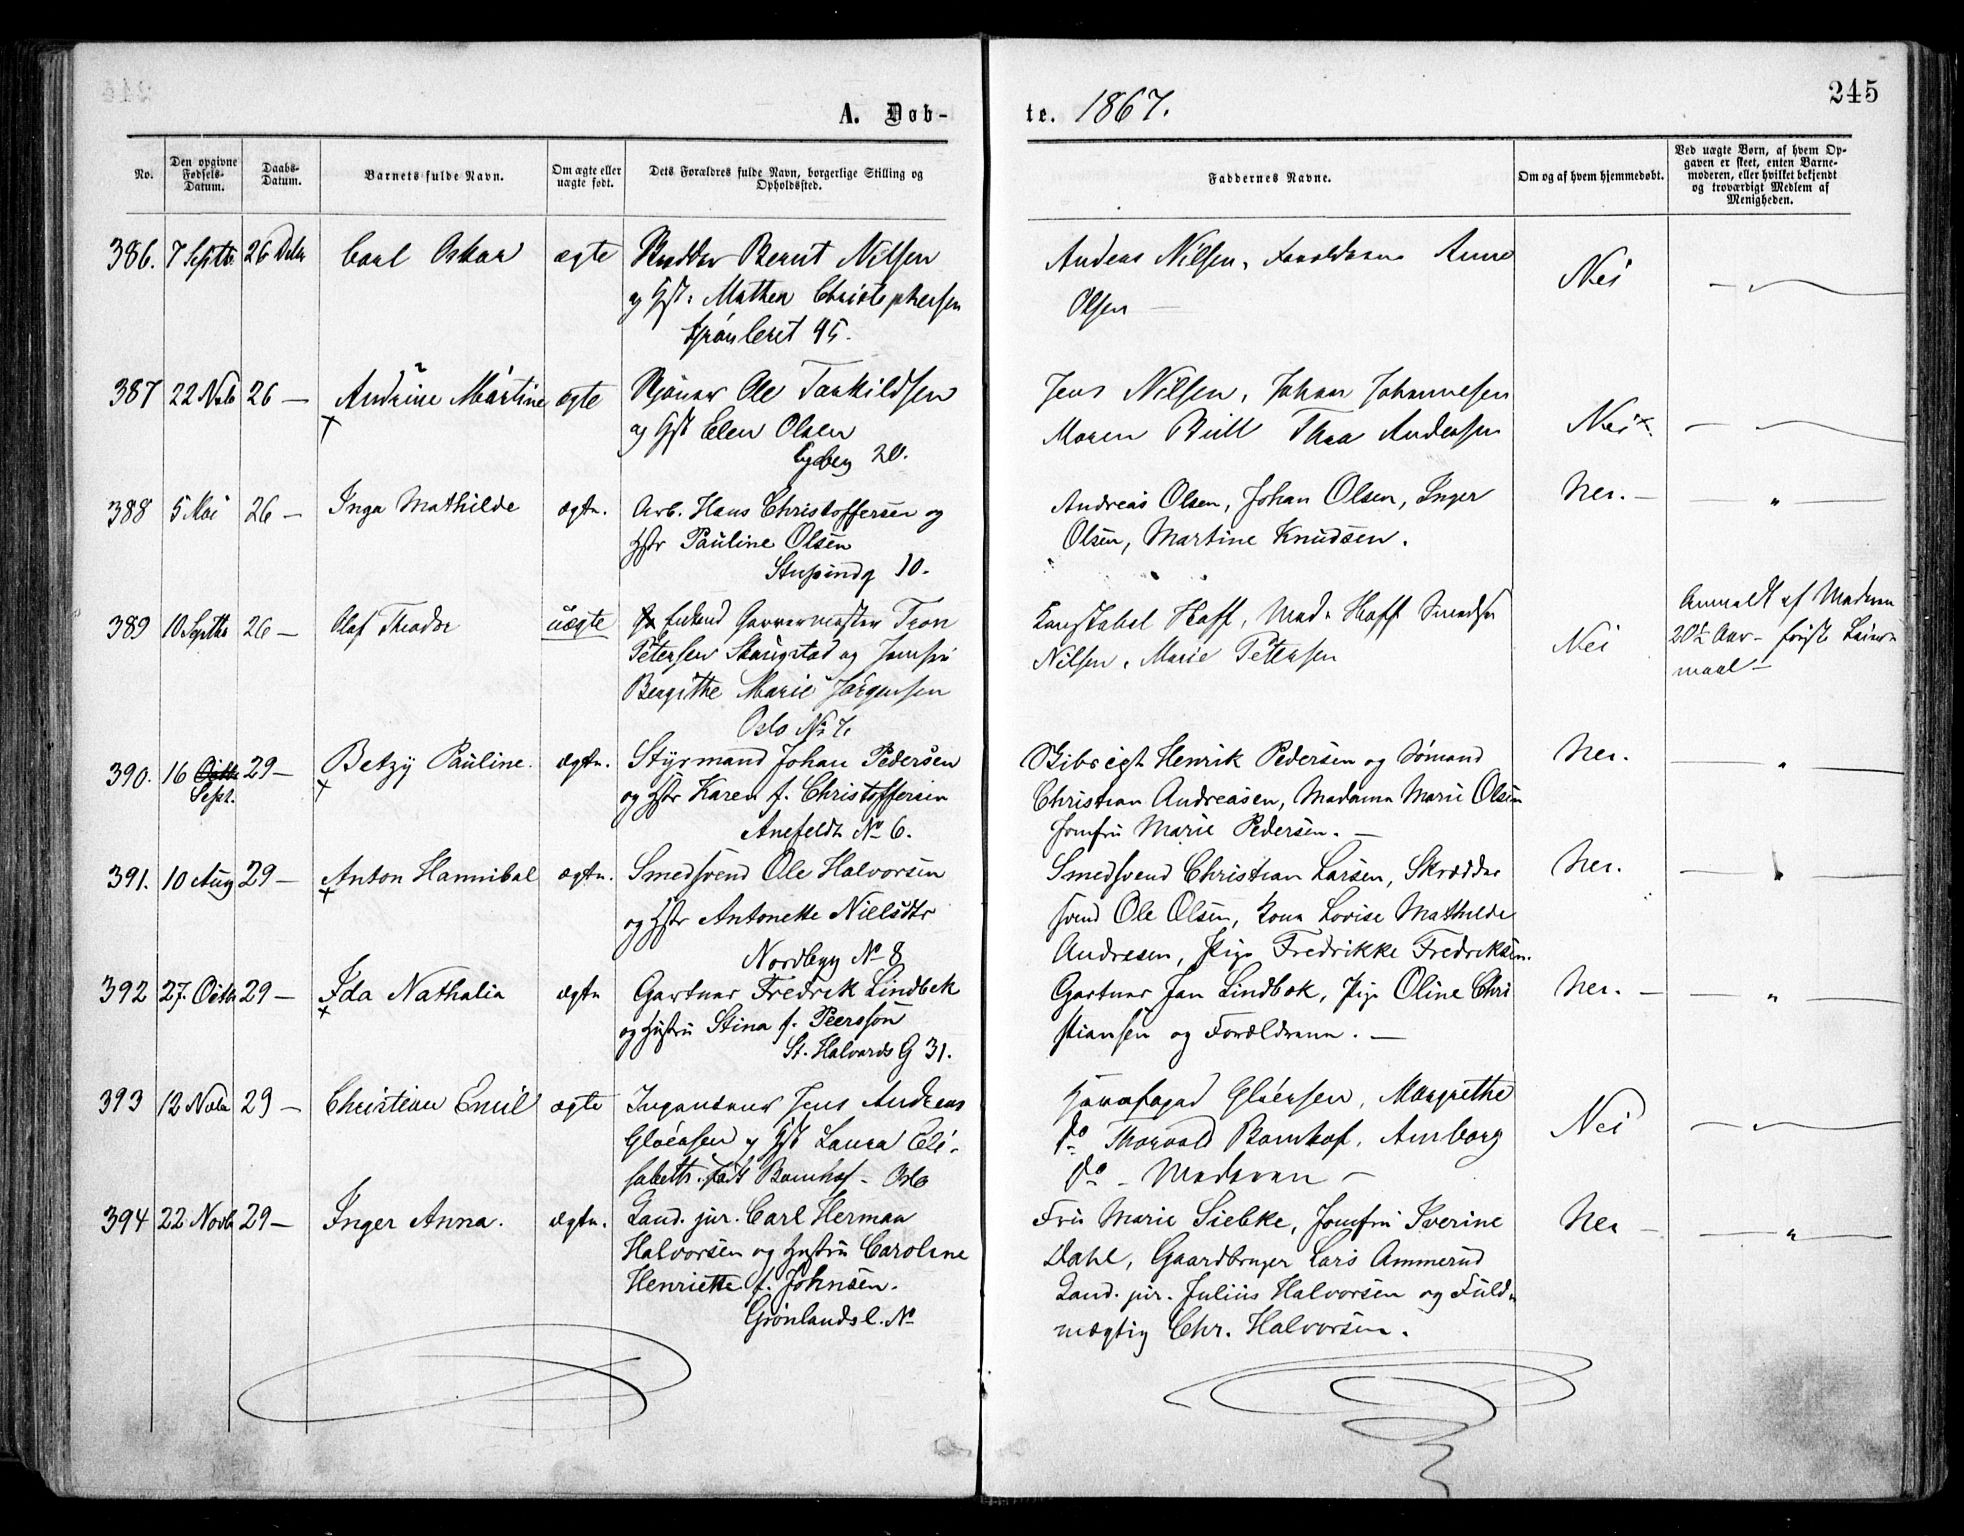 245
A. Døb-
te. 1867.
No.
Den opgivne Fødsels-Datum.
Daabs-Datum.
Barnets fulde Navn.
Om ægte eller uægte født.
Dets Forældres fulde Navn, borgerlige Stilling og Opholdssted.
Faddernes Navne.
Om og af hvem hjemmedøbt.
Ved uægte Børn, af hvem Opgaven er skeet, enten Barnemoderen, eller hvilket bekjendt og troværdigt Medlem af Menigheden.
386. 7 Septbr 26 Dcbr Carl Oskar ægte Skrædder Bernt Nilsen
og Hst: Mathea Christophersen
Grønleret 45.
Andreas Nilsen, Forældrene Anne
Olsen —
Nei
387 22 Novb 26 — Andrine Martine ægte Skjønner Ole Tarkildsen
og Hst Elen Olsen
Egeberg 20.
Jens Nilsen, Johan Johannesen
Maren Bull Thea Andersen
Nei
388 5 Mai 26 — Inga Mathilde ægte. Arb. Hans Christoffersen og
Hstr Pauline Olsen
Stupindg 10.
Andreas Olsen, Johan Olsen, Inger
Olsen, Martine Knudsen.
Nei. — " —
389 10 Septbr 26 — Olaf Theodor uægte Garvermester Tron
Petersen Skaugstad og Jomfru
Bergithe Marie Jørgensen
Oslo No 7.
Konstabel Hoff, Mad. Hoff
Nilsen, Marie Pettersen
Nei
Anmeldt af Moderen
20½ Aar – første Leier-
maal —
390. 16 Octbr Sept. 29 — Betzy Pauline. ægte. Styrmand Johan Pedersen
og Hstr Karen f. Christoffersen
Anefeldt No 6.
Skibsrigt Henrik Pedersen og Sømand
Christian Andreasen, Madame Marie Olsen
Jomfru Marie Pedersen. —
Nei. — " —
391. 10 Aug 29 — Anton Hannibal ægte. Smedsvend Ole Halvorsen
og Hstr Antonette Nielsdtr
Nordbygg No 8
Smedsvend Christian Larsen, Skrædder
svend Ole Olsen, Kone Lovise Mathilde
Andresen, Pige Fredrikke Fredriksen.
Nei. — " —
392 27. Octbr 29 — Ida Nathalia ægte Gartner Fredrik Lindbek
og Hustru Stina f. Peersson
St. Halvards G 31.
Gartner Jan Lindbæk, Pige Oline Chri
stiansen og Forældrene. —
Nei. — " —
393 12 Novb 29 — Christian Emil ægte Ingeniør Jens Andreas
Gløersen og Hst Laura Eli-
sabeth født Bomhof – Oslo
Gløersen, Margrethe
do Thorvald Bomhof, Amborg
do – Moderen —
Nei
394 22 Novb 29 — Inger Anna. ægte. Cand. jur. Carl Herman
Halvorsen og Hustru Caroline
Henriette f. Johnsen.
Grønlandsl. No
Fru Marie Siebke, Jomfru Iverine
Dahl, Gaardbruger Lars Ammerud
Cand. jur. Julius Halvorsen og Fuld-
mægtig Chr. Halvorsen.
Nei — " —